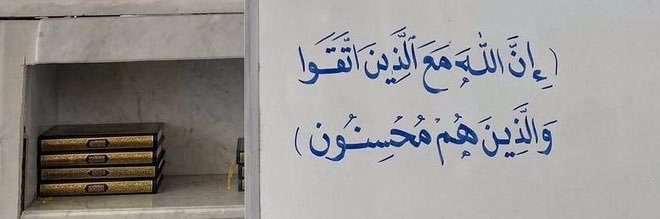 (إِنَّ اللَّهَ مَعَ الَّذِينَ اتَّقَوا
وَالَّذِينَ هُمْ مُحْسِنُون)